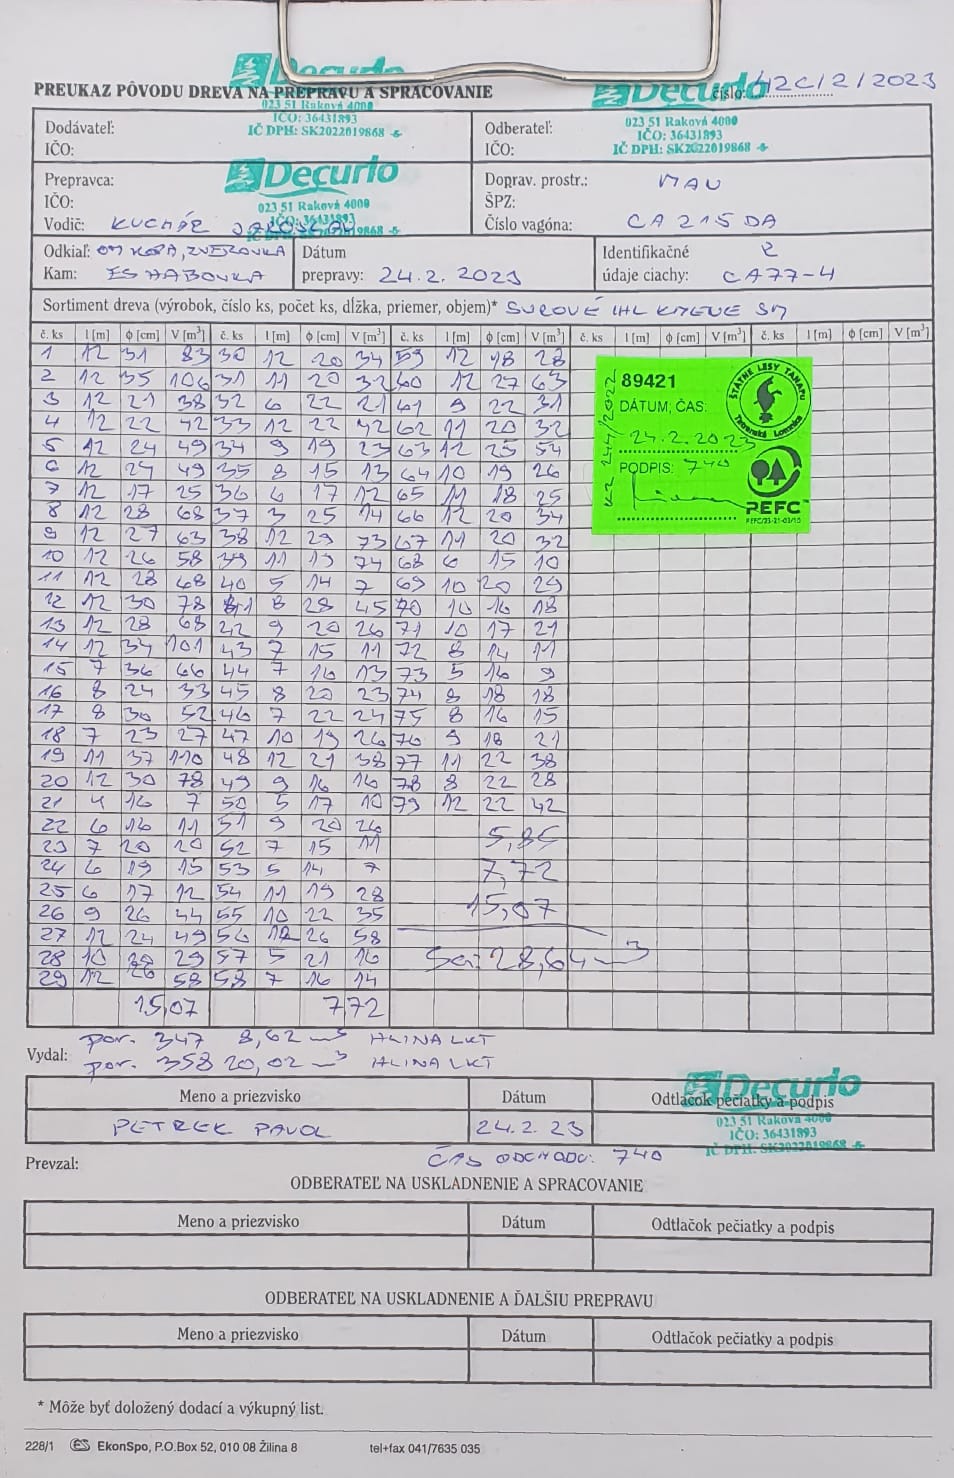 PREUKAZ PÔVODU DREVA NA PREPRAVU A SPRACOVANIE
číslo: 42C/2/2023
Decurlo
023 51 Raková 4000
IČO: 36431893
IČ DPH: SK2022019868
Decurlo
023 51 Raková 4000
IČO: 36431893
IČ DPH: SK2022019868
Dodávateľ:
IČO:
Odberateľ:
IČO:
Decurlo
023 51 Raková 4000
IČO: 36431893
Prepravca:
IČO:
Vodič: KUCHÁR JAROSLAV
Doprav. prostr.: MAN
ŠPZ:
Číslo vagóna: CA 215 DA
Odkiaľ: KOPA, ZVEROVKA
Kam: ES HABOVKA
Dátum
prepravy: 24.2.2023
Identifikačné
údaje ciachy: CA77-4
Sortiment dreva (výrobok, číslo ks, počet ks, dĺžka, priemer, objem)* SUROVÉ IHL KMENE SM
č. ks l [m] φ [cm] V [m³] č. ks l [m] φ [cm] V [m³] č. ks l [m] φ [cm] V [m³] č. ks l [m] φ [cm] V [m³] č. ks l [m] φ [cm] V [m³]
1 12 31 83 30 12 20 34 59 12 18 28
2 12 35 106 31 11 20 32 60 12 27 63
3 12 21 38 32 6 22 21 61 9 22 31
4 12 22 42 33 12 22 42 62 11 20 32
5 12 24 49 34 9 19 23 63 12 25 54
6 12 24 49 35 8 15 13 64 10 19 26
7 12 17 25 36 6 17 12 65 11 18 25
8 12 28 68 37 3 25 14 66 12 20 34
9 12 27 63 38 12 29 73 67 11 20 32
10 12 26 58 39 11 19 74 68 6 15 10
11 12 28 68 40 5 14 7 69 10 20 29
12 12 30 78 41 8 28 45 70 10 16 18
13 12 28 68 42 9 20 26 71 10 17 21
14 12 34 101 43 7 15 11 72 8 14 11
15 7 36 66 44 7 16 13 73 5 16 9
16 8 24 33 45 8 20 23 74 8 18 18
17 8 30 52 46 7 22 24 75 8 16 15
18 7 23 27 47 10 19 26 76 9 18 21
19 11 37 110 48 12 21 38 77 11 22 38
20 12 30 78 49 9 16 16 78 8 22 28
21 4 16 7 50 5 17 10 79 12 22 42
22 6 16 11 51 9 20 26
23 7 20 20 52 7 15 11 5,85
24 6 19 15 53 5 14 7 7,72
25 6 17 12 54 11 19 28
26 9 26 44 55 10 22 35 15,07
27 12 24 49 56 12 26 58
28 10 20 29 57 5 21 16 Sa: 28,64 m3
29 12 26 58 58 7 16 14
15,07 7,72
89421
DÁTUM, ČAS:
24.2.2023
PODPIS: 740
ŠTÁTNE LESY TANAPU
Tatranská Lomnica
PEFC™
por. 347 8,62 m3 HLINA LKT
Vydal: por. 358 20,02 m3 HLINA LKT
Meno a priezvisko Dátum Odtlačok pečiatky a podpis
PETREK PAVOL 24.2.23
Decurlo
023 51 Raková 4000
IČO: 36431893
IČ DPH: SK2022019868
ČAS ODCHODU: 740
Prevzal:
ODBERATEĽ NA USKLADNENIE A SPRACOVANIE
Meno a priezvisko Dátum Odtlačok pečiatky a podpis
ODBERATEĽ NA USKLADNENIE A ĎALŠIU PREPRAVU
Meno a priezvisko Dátum Odtlačok pečiatky a podpis
* Môže byť doložený dodací a výkupný list.
228/1 ES EkonSpo, P.O.Box 52, 010 08 Žilina 8 tel+fax 041/7635 035